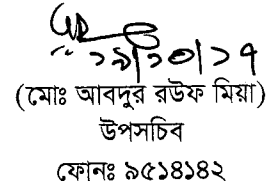 ২৯/১০/১৭
(মোঃ আবদুর রউফ মিয়া)
উপসচিব
ফোনঃ ৯৫১৪১৪২